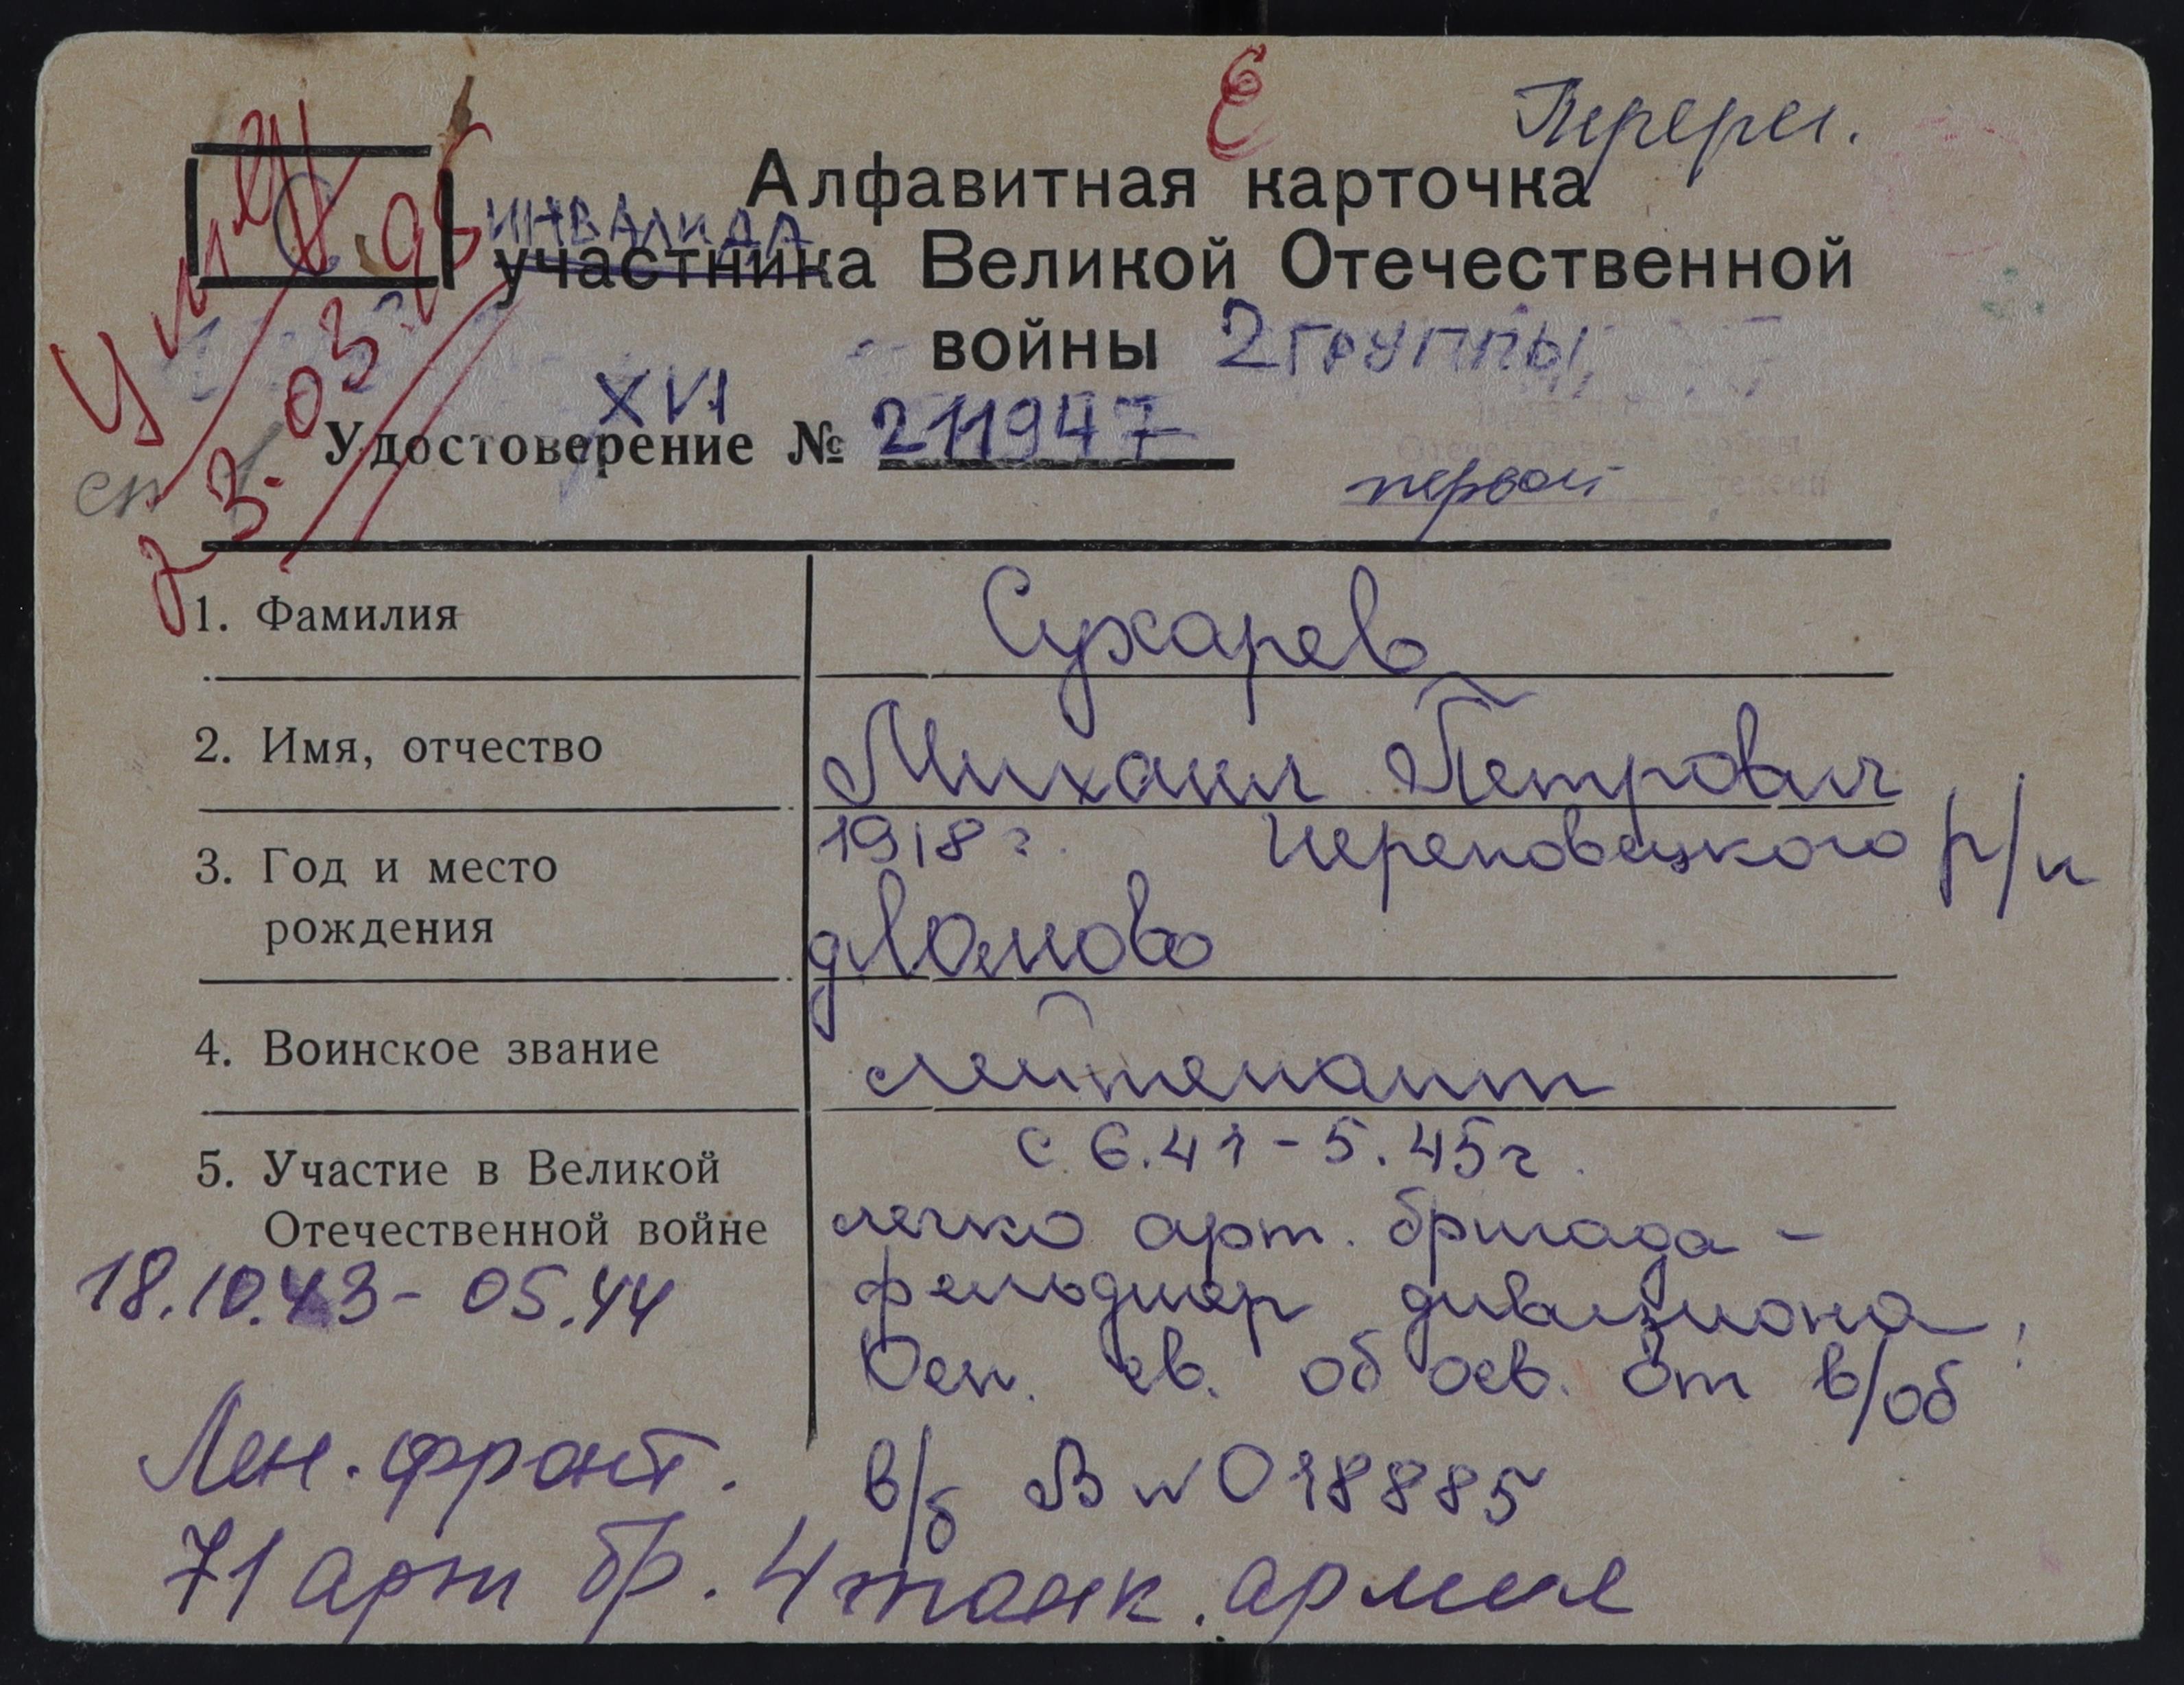 Е
Перерег.
С
Умер
23.03.95
Алфавитная карточка
ИНВАЛИДА
участника Великой Отечественной
войны 2 ГРУППЫ
XVI
Удостоверение № 211947
Отечественной войны
первой степени
1. Фамилия
Сухарев
2. Имя, отчество
Михаил Петрович
3. Год и место
рождения
1918 г. Череповецкого р/н
4. Воинское звание
лейтенант
5. Участие в Великой
Отечественной войне
с 6.41 - 5.45 г.
легко арт. бригада -
фельдшер дивизиона.
Осн. св. об осв. от в/об
в/б В № 018885
18.10.43 - 05.44
Лен. фронт.
71 арт бр. 4 танк. армия